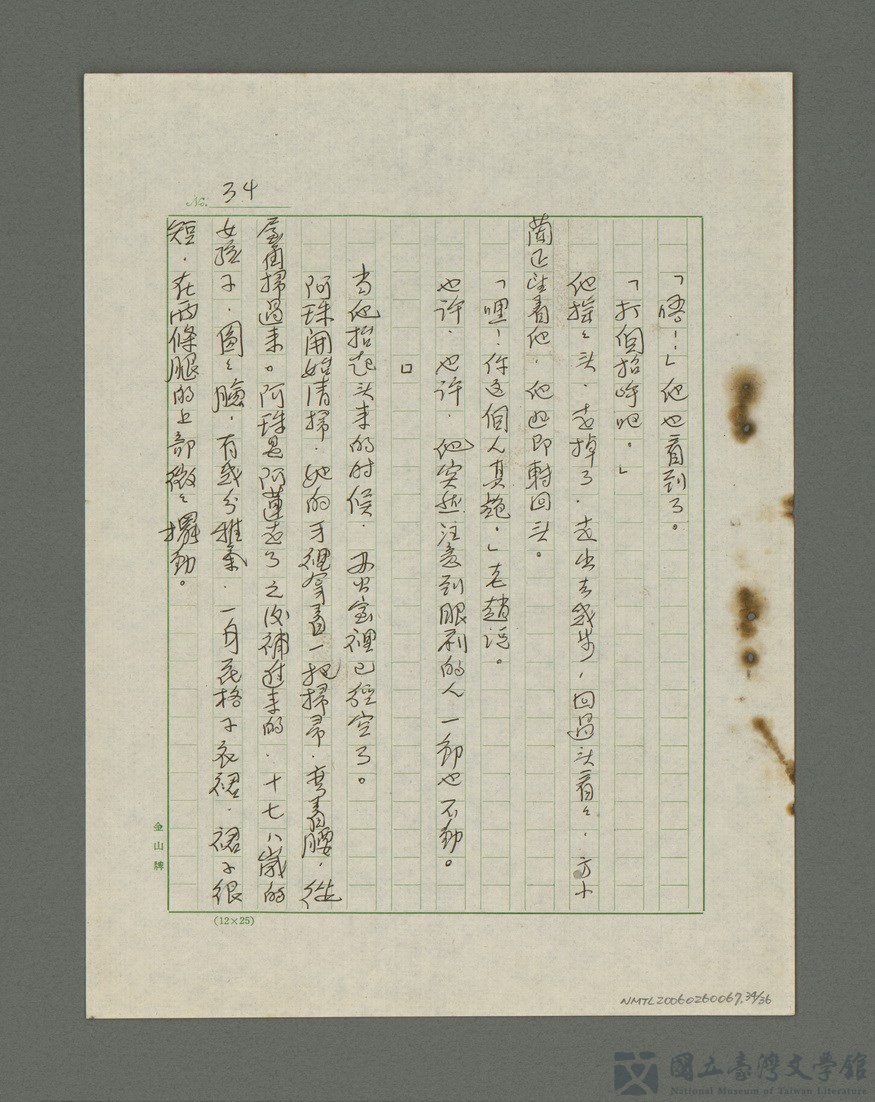 No. 34
「唔！」他也看到了。
「打個招呼吧。」
他搖々头，走掉了，走出去幾步，回過头看々，方小
蘭正望着他，他迅即轉回头。
「嘿！你這個人真絕，」老趙说。
也许，也许，他突然注意到眼前的人一動也不動。
□
当他抬起头来的时候，办公室裡已經空了。
阿珠開始清掃，她的手裡拿着一把掃帚，弯着腰，從
屋角掃過来。阿珠是阿蓮走了之後補進来的，十七八歲的
女孩子，圓々臉，有幾分稚氣，一身花格子衣裙，裙子很
短，在兩條腿的上部微々擺動。
金山牌
(12×25)
NMTL20060260067,34/36
國立臺灣文學館
National Museum of Taiwan Literature